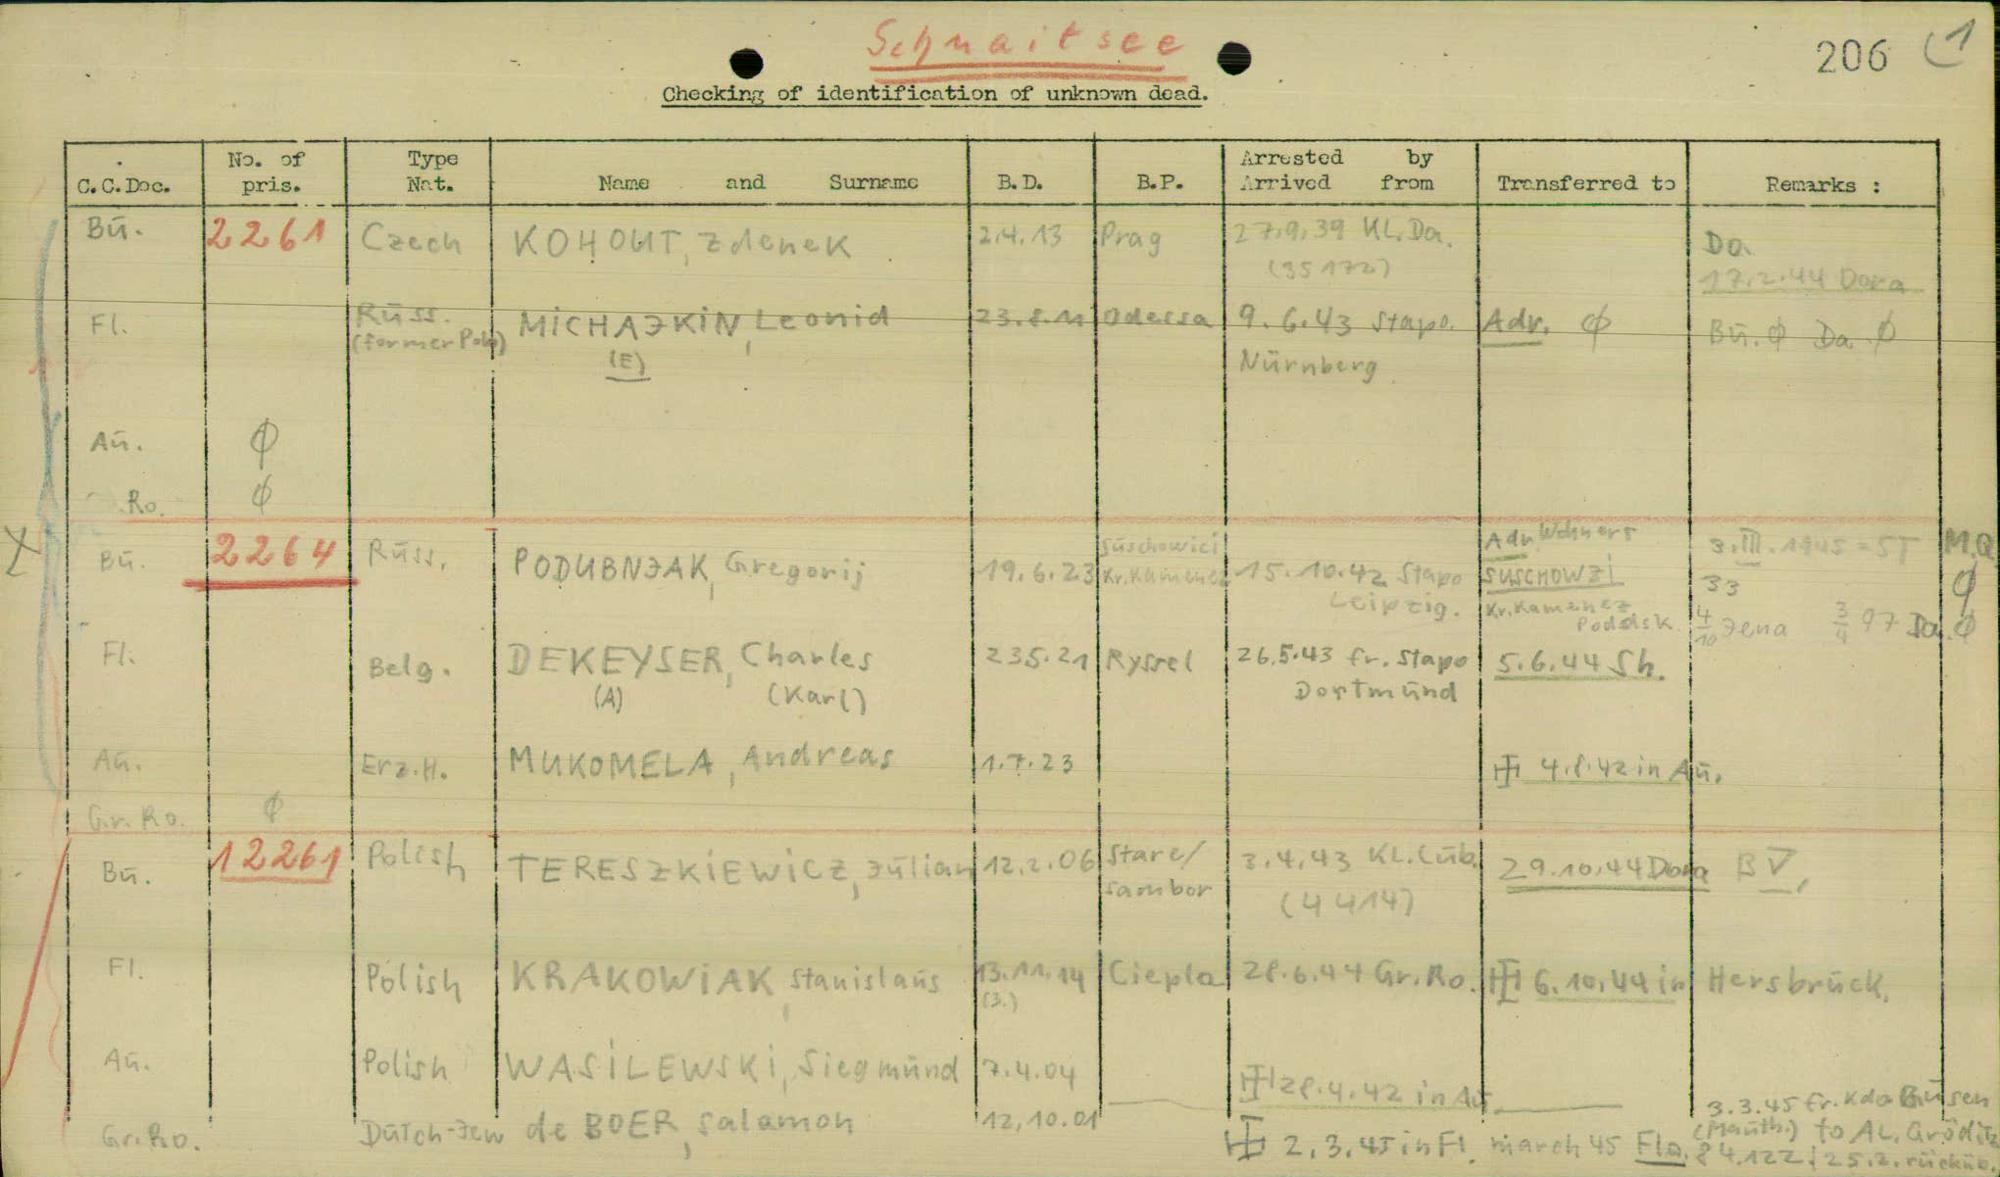 Schnaitsee
206 1
Checking of identification of unknown dead.
C.C.Doc. No. of pris. Type Nat. Name and Surname B.D. B.P. Arrested by Arrived from Transferred to Remarks :
Bū. 2261 Czech KOHOUT, Zdenek 2.4.13 Prag 27.9.39 KL. Da. Da.
(35172) 17.2.44 Dora
Fl. Rūss. MICHAJKIN, Leonid 23.8.11 Odessa 9.6.43 Stapo. Adr. ϕ Bū. ϕ Da. ϕ
(former Pole) (E) Nürnberg
Aū. ϕ
Ro. ϕ
Bū. 2264 Rūss. PODUBNJAK, Gregorij 19.6.23 Süschowici Kr. Kamenez 15.10.42 Stapo Leipzig. Adr. Wohnort SUSCHOWZI Kr. Kamenez 3.III.1945 = ST 33 M.Q ϕ
4/10 Jena 3/4 97 Da. ϕ
Fl. Belg. DEKEYSER, Charles 23.5.21 Ryssel 26.5.43 fr. Stapo 5.6.44 Sh.
(A) (Karl) Dortmūnd
Aū. Erz.H. MUKOMELA, Andreas 1.7.23 4.8.42 in Aū.
Gr. Ro. ϕ
Bū. 12261 Polish TERESZKIEWICZ, Jūlian 12.2.06 Stare/ 3.4.43 KL. Lūb. 29.10.44 Dora BV,
Sambor (4414)
Fl. Polish KRAKOWIAK, Stanislaūs 13.11.14 Ciepla 28.6.44 Gr. Ro. 6.10.44 in Hersbrück.
(3.)
Aū. Polish WASILEWSKI, Siegmūnd 7.4.04 28.4.42 in Aū.
Gr. Ro. Dūtch-Jew de BOER, Salamon 12.10.01 2.3.45 in Fl. march 45 Fla. 3.3.45 fr. Kdo Gūsen
(Mauth.) to AL. Gröditz
84.122 25.2. rücküb.